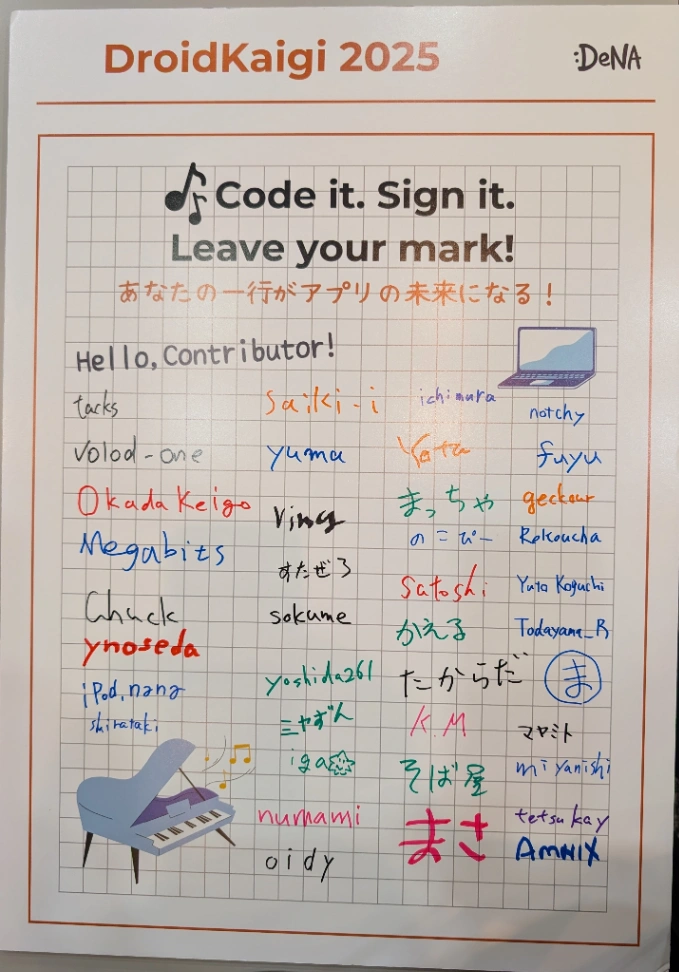 DroidKaigi 2025
:DeNA
Code it. Sign it.
Leave your mark!
あなたの一行がアプリの未来になる！
Hello, Contributor!
tacks
saiki-i
ichimura
notchy
Volod-one
yuma
Yata
fuyu
Okada Keigo
Ving
まっちゃ
geckour
Megabits
すたぜろ
のこぴー
Rekoucha
Chuck
sokume
Satoshi
Yuto Koguchi
ynoseda
かえる
Todayama_R
iPod.nano
yoshida261
たからだ
ま
shirataki
ミヤずん
K.M
マヤミト
iga
そば屋
miyanishi
numami
まさ
tetsukay
oidy
AMNIX